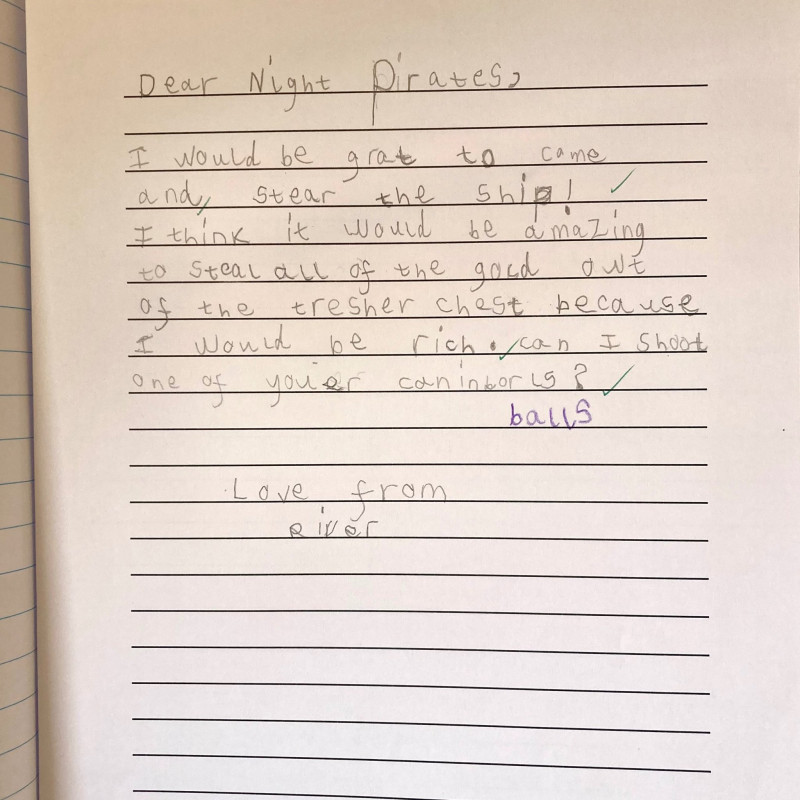 Dear Night Pirates,
I would be grat to came
and, stear the ship!
I think it would be amazing
to steal all of the gold owt
of the tresher chest because
I would be rich. can I shoot
one of youer caninborls?
balls
Love from
eiver